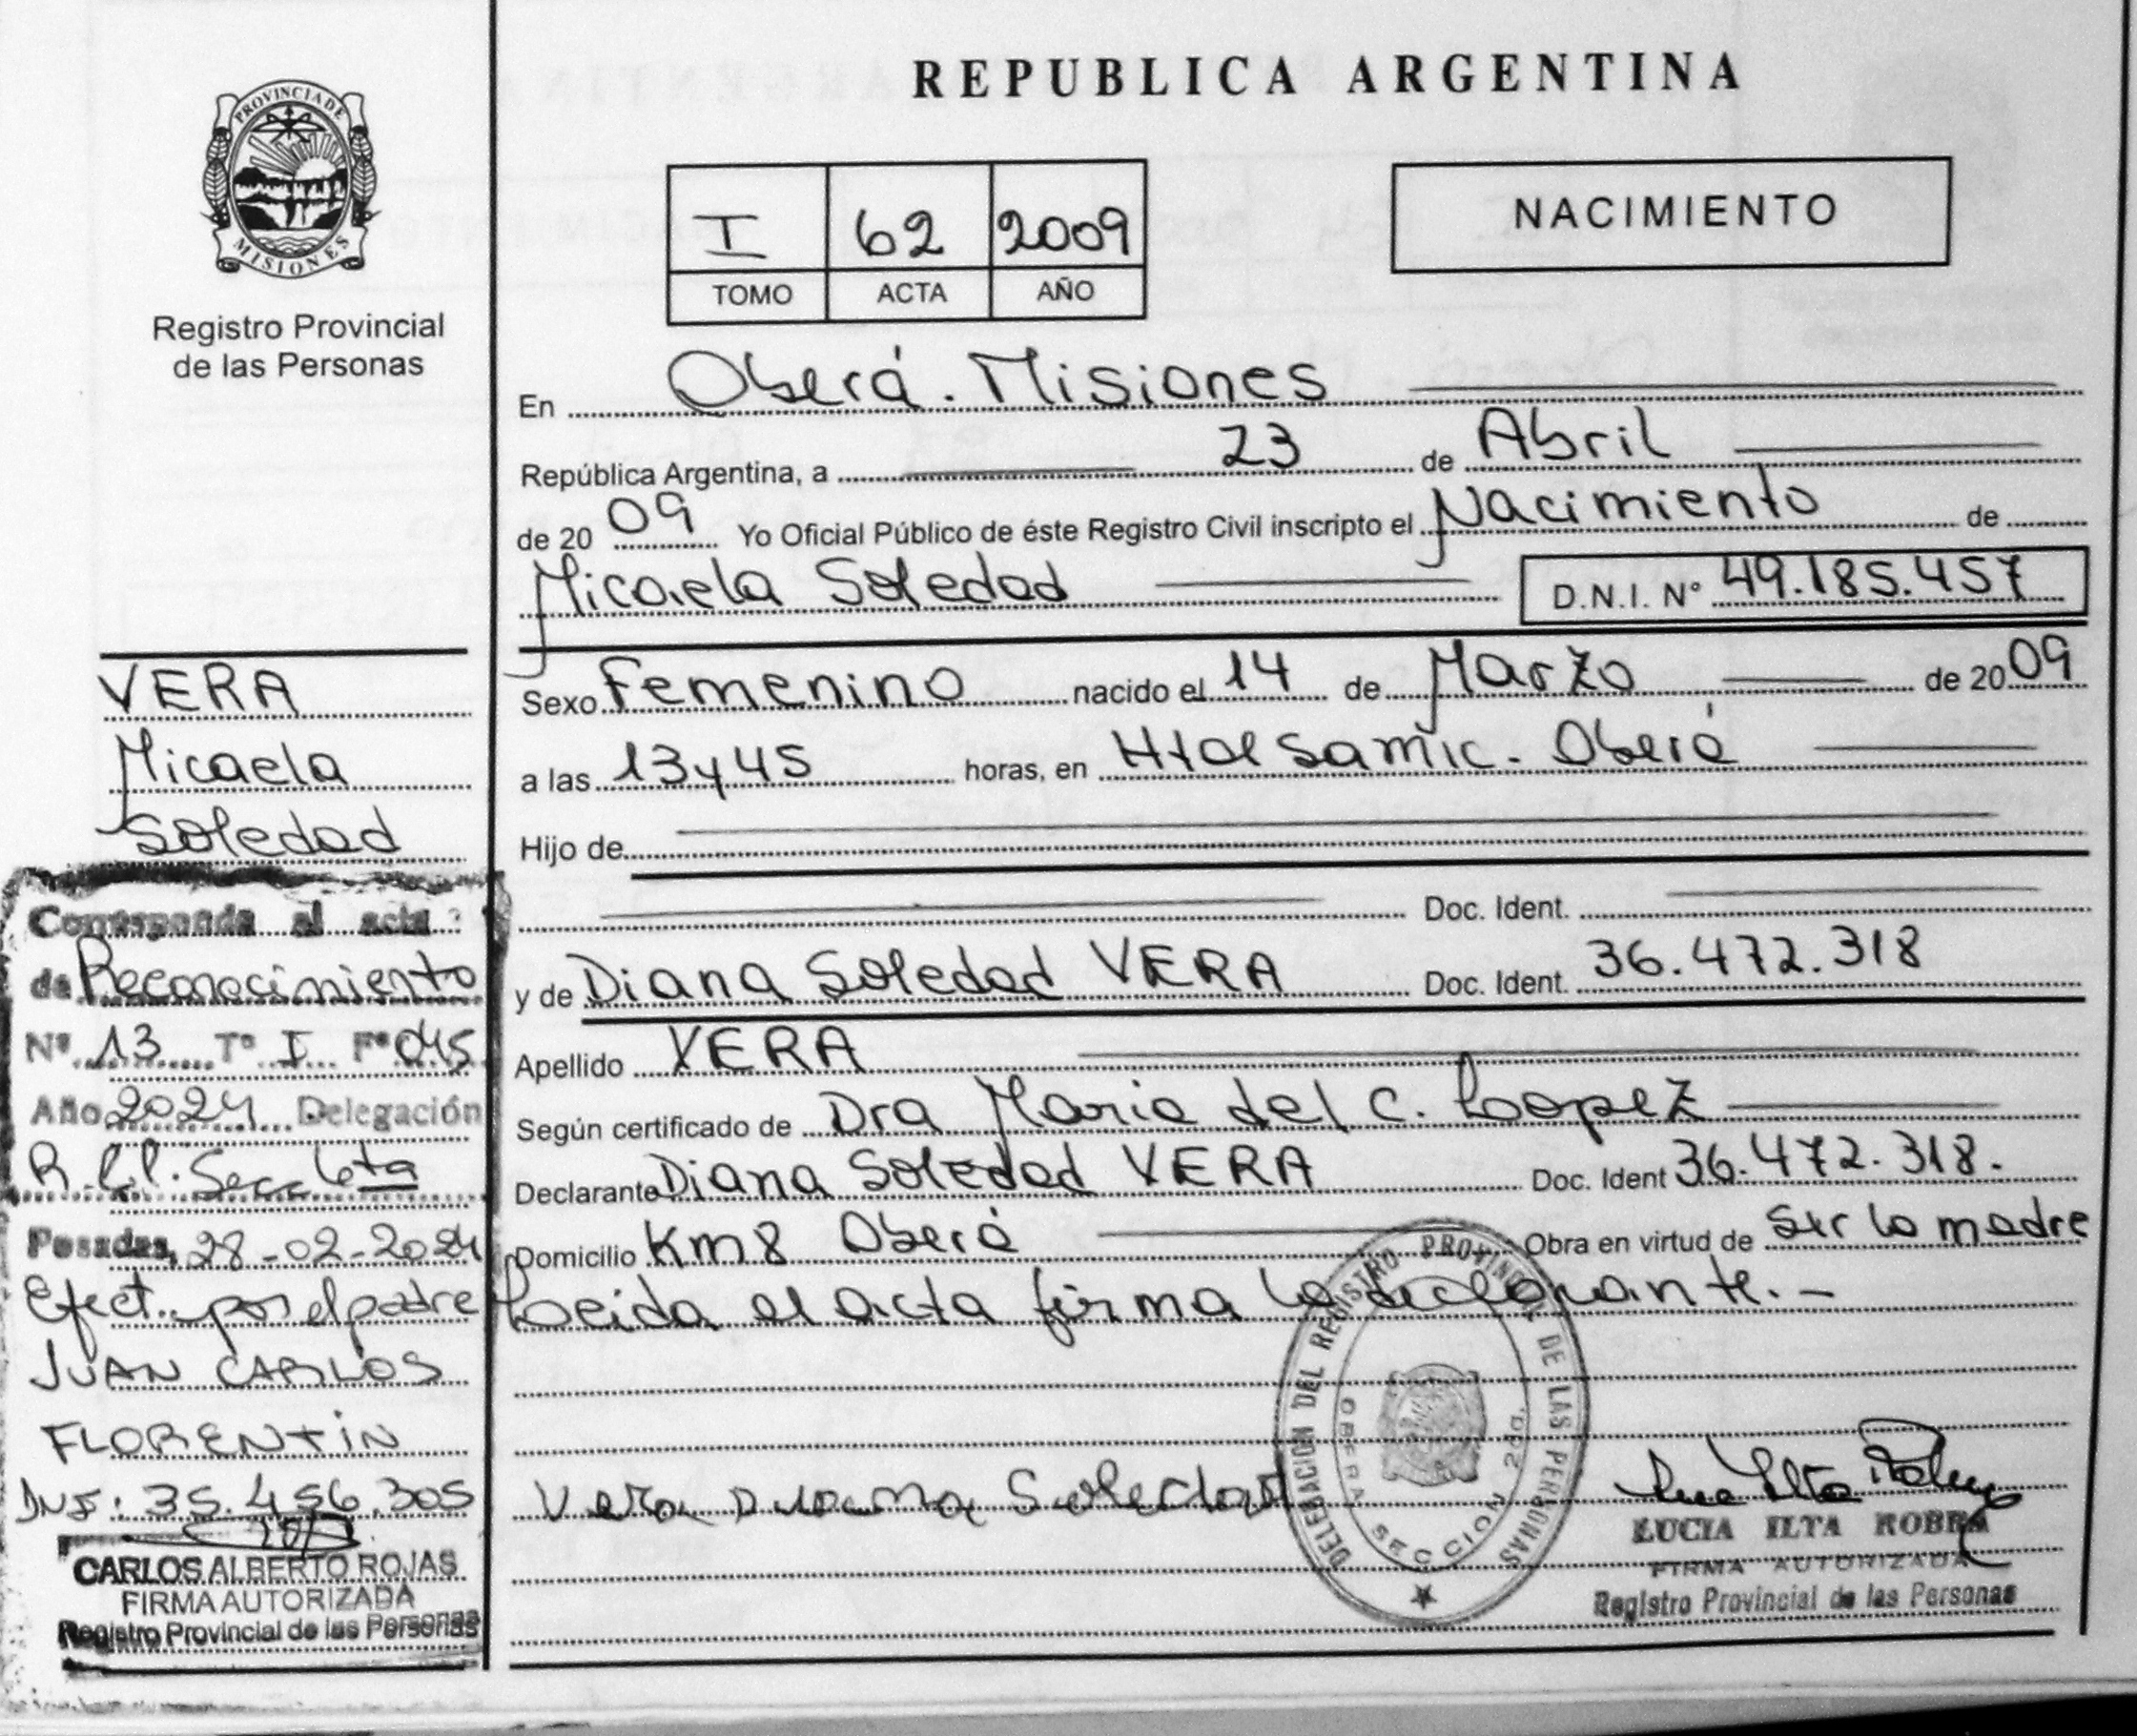 PROVINCIA DE
MISIONES
Registro Provincial
de las Personas
VERA
Micaela
Soledad
Corresponde al acta:
de Reconocimiento
Nº 13 Tº I Fº 045
Año 2024 Delegación
Secc 6ta
Posadas, 28-02-2024
Efect. por el padre
JUAN CARLOS
FLORENTIN
DNI: 35.456.305
CARLOS ALBERTO ROJAS
FIRMA AUTORIZADA
Registro Provincial de las Personas
REPUBLICA ARGENTINA
I 62 2009
TOMO ACTA AÑO
NACIMIENTO
En Oberá. Misiones
República Argentina, a 23 de Abril
de 2009 Yo Oficial Público de éste Registro Civil inscripto el Nacimiento de
Micaela Soledad D.N.I. Nº 49.185.457
Sexo Femenino nacido el 14 de Marzo de 2009
a las 13y45 horas, en Htal Samic. Oberá
Hijo de
Doc. Ident.
y de Diana Soledad VERA Doc. Ident. 36.472.318
Apellido VERA
Según certificado de Dra Maria del C. Lopez
Declarante Diana Soledad VERA Doc. Ident 36.472.318.
Domicilio Km8 Oberá Obra en virtud de ser la madre
Leida el acta firma la declarante.-
Vera Diana Soledad
DELEGACION DEL REGISTRO PROVINCIAL DE LAS PERSONAS
OBERA SECCION 2da.
LUCIA ILTA ROBRA
FIRMA AUTORIZADA
Registro Provincial de las Personas